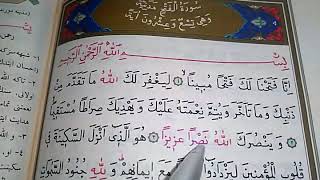 سُورَةُ الْفَتْحِ مَدَنِيَّةٌ
وَهِیَ تِسْعٌ وَ عِشْرُونَ آيَةً
بِسْمِ اللّٰهِ الرَّحْمٰنِ الرَّحِيمِ
اِنَّا فَتَحْنَا لَكَ فَتْحًا مُبِينًا ۝ لِيَغْفِرَ لَكَ اللّٰهُ مَا تَقَدَّمَ مِنْ
ذَنْبِكَ وَ مَا تَاَخَّرَ وَ يُتِمَّ نِعْمَتَهُ عَلَيْكَ وَ يَهْدِيَكَ صِرَاطًا مُسْتَقِيمًا
وَ يَنْصُرَكَ اللّٰهُ نَصْرًا عَزِيزًا ۝ هُوَ الَّذِى اَنْزَلَ السَّكِينَةَ فِى
قُلُوبِ الْمُؤْمِنِينَ لِيَزْدَادُوا مَعَ اِيمَانِهِمْ وَ لِلّٰهِ جُنُودُ السَّمٰوَاتِ